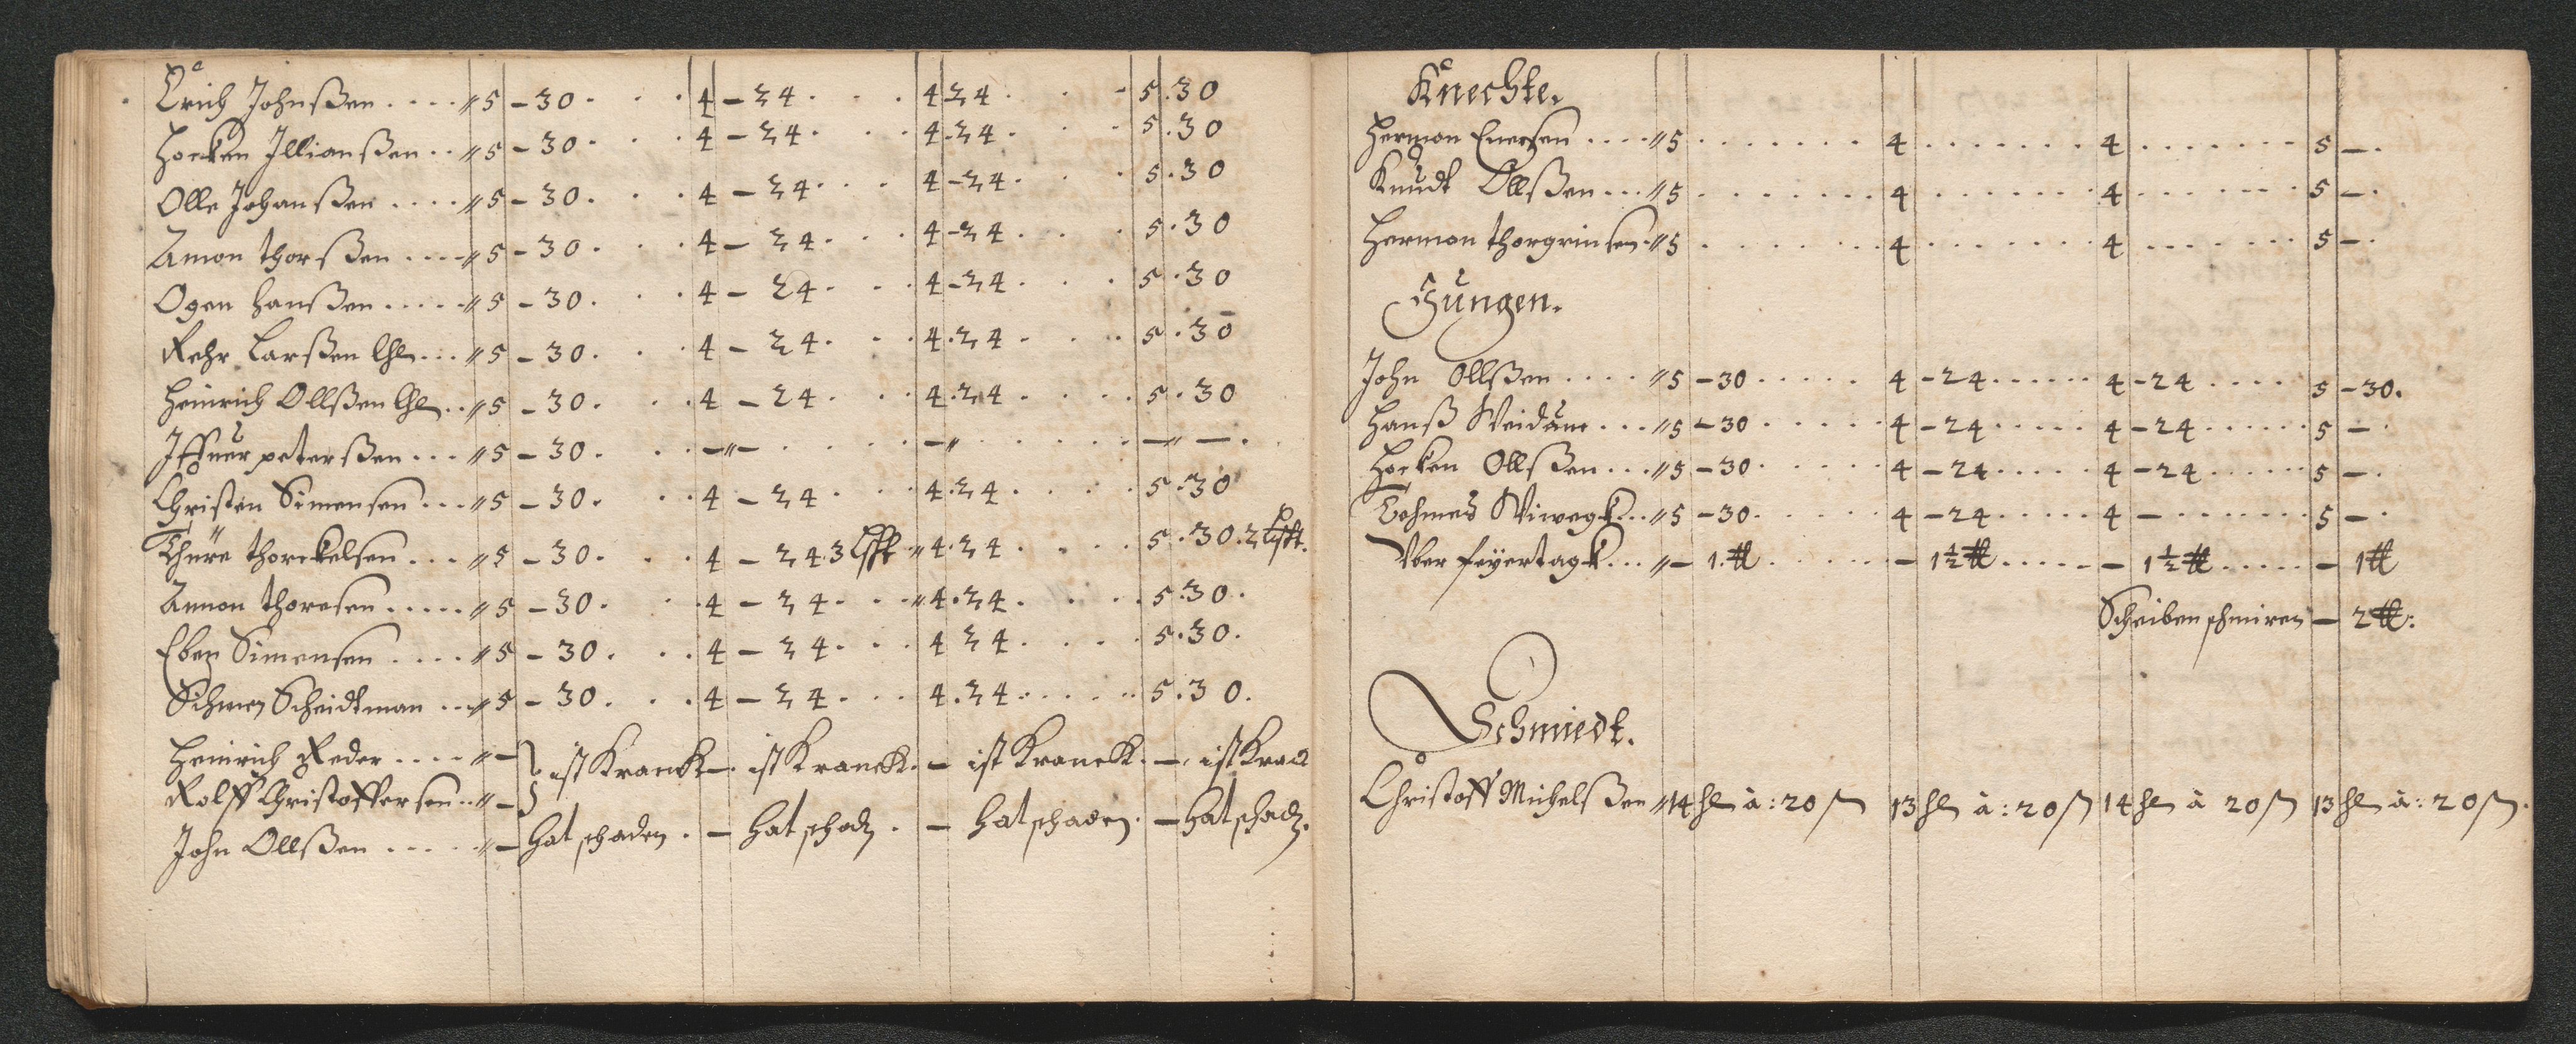 Erich Johnßen .... " 5 - 30 . . . 4 - 24 . . . 4 24 . . - 5 . 30
Hocken Illianßen .. " 5 - 30 . . . 4 - 24 . . . 4 . 24 . . . 5 . 30
Olle Johanßen .... " 5 - 30 . . . 4 - 24 . . . 4 - 24 . . . 5 . 30
Amon thorßen .... " 5 - 30 . . . 4 - 24 . . . 4 - 24 . . . 5 . 30
Ogen Hanßen ..... " 5 - 30 . . . 4 - 24 . . . 4 - 24 . . . 5 . 30
Rehr Larßen ... " 5 - 30 . . . 4 - 24 . . . 4 . 24 . . . 5 . 30
Heinrich Ollßen .. " 5 - 30 . . . 4 - 24 . . . 4 . 24 . . . 5 . 30
Iffuer peterßen ... " 5 - 30 . . . - " - . . . - " . . . - " - .
Christen Simensen ... " 5 - 30 . . . 4 - 24 . . . 4 . 24 . . . 5 . 30
Thure thorckelsen ... " 5 - 30 . . . 4 - 24 . 3 " 4 . 24 . . . 5 . 30 . 2
Amon thoresen ..... " 5 - 30 . . . 4 - 24 . . " 4 . 24 . . . 5 . 30 .
Eben Simensen .... " 5 - 30 . . . 4 - 24 . . . 4 24 . . . 5 . 30 .
Sihmen Scheidtman ... " 5 - 30 . . . 4 - 24 . . . 4 . 24 . . . 5 . 30 .
Heinrich Reder .... " - } ist Kranck - ist Kranck . - ist Kranck . - ist Kranck
Rolff Christoffersen .. " -
John Ollßen ..... " - hat schaden . - hat schaden . - hat schaden . - hat schaden .
Knechte.
Hermon Enersen .... " 5 ....... 4 ....... 4 ....... 5 - .
Knudt Ollßen ... " 5 ....... 4 ....... 4 ....... 5 - .
Hermon thorgrinsen . " 5 ....... 4 ....... 4 ....... 5 - .
Jungen.
John Ollßen .... " 5 - 30 ..... 4 - 24 ...... 4 - 24 .... 5 - 30 .
Hanß Weidum ... " 5 - 30 ..... 4 - 24 ..... 4 - 24 ...... 5 - .
Hocken Ollßen ... " 5 - 30 ..... 4 - 24 ..... 4 - 24 ...... 5 - .
Tohmes Wiwegk .. " 5 - 30 ..... 4 - 24 ..... 4 - ....... 5 - .
Vber feyertagk ... " - 1 . ℔ ..... - 1½ ℔ ..... - 1½ ℔ ..... - 1 ℔
Scheiben schmiren - 2 ℔ :
Schmiedt.
Christoff Michelßen " 14 à : 20 ß 13 à : 20 ß 14 à 20 ß 13 à : 20 ß .